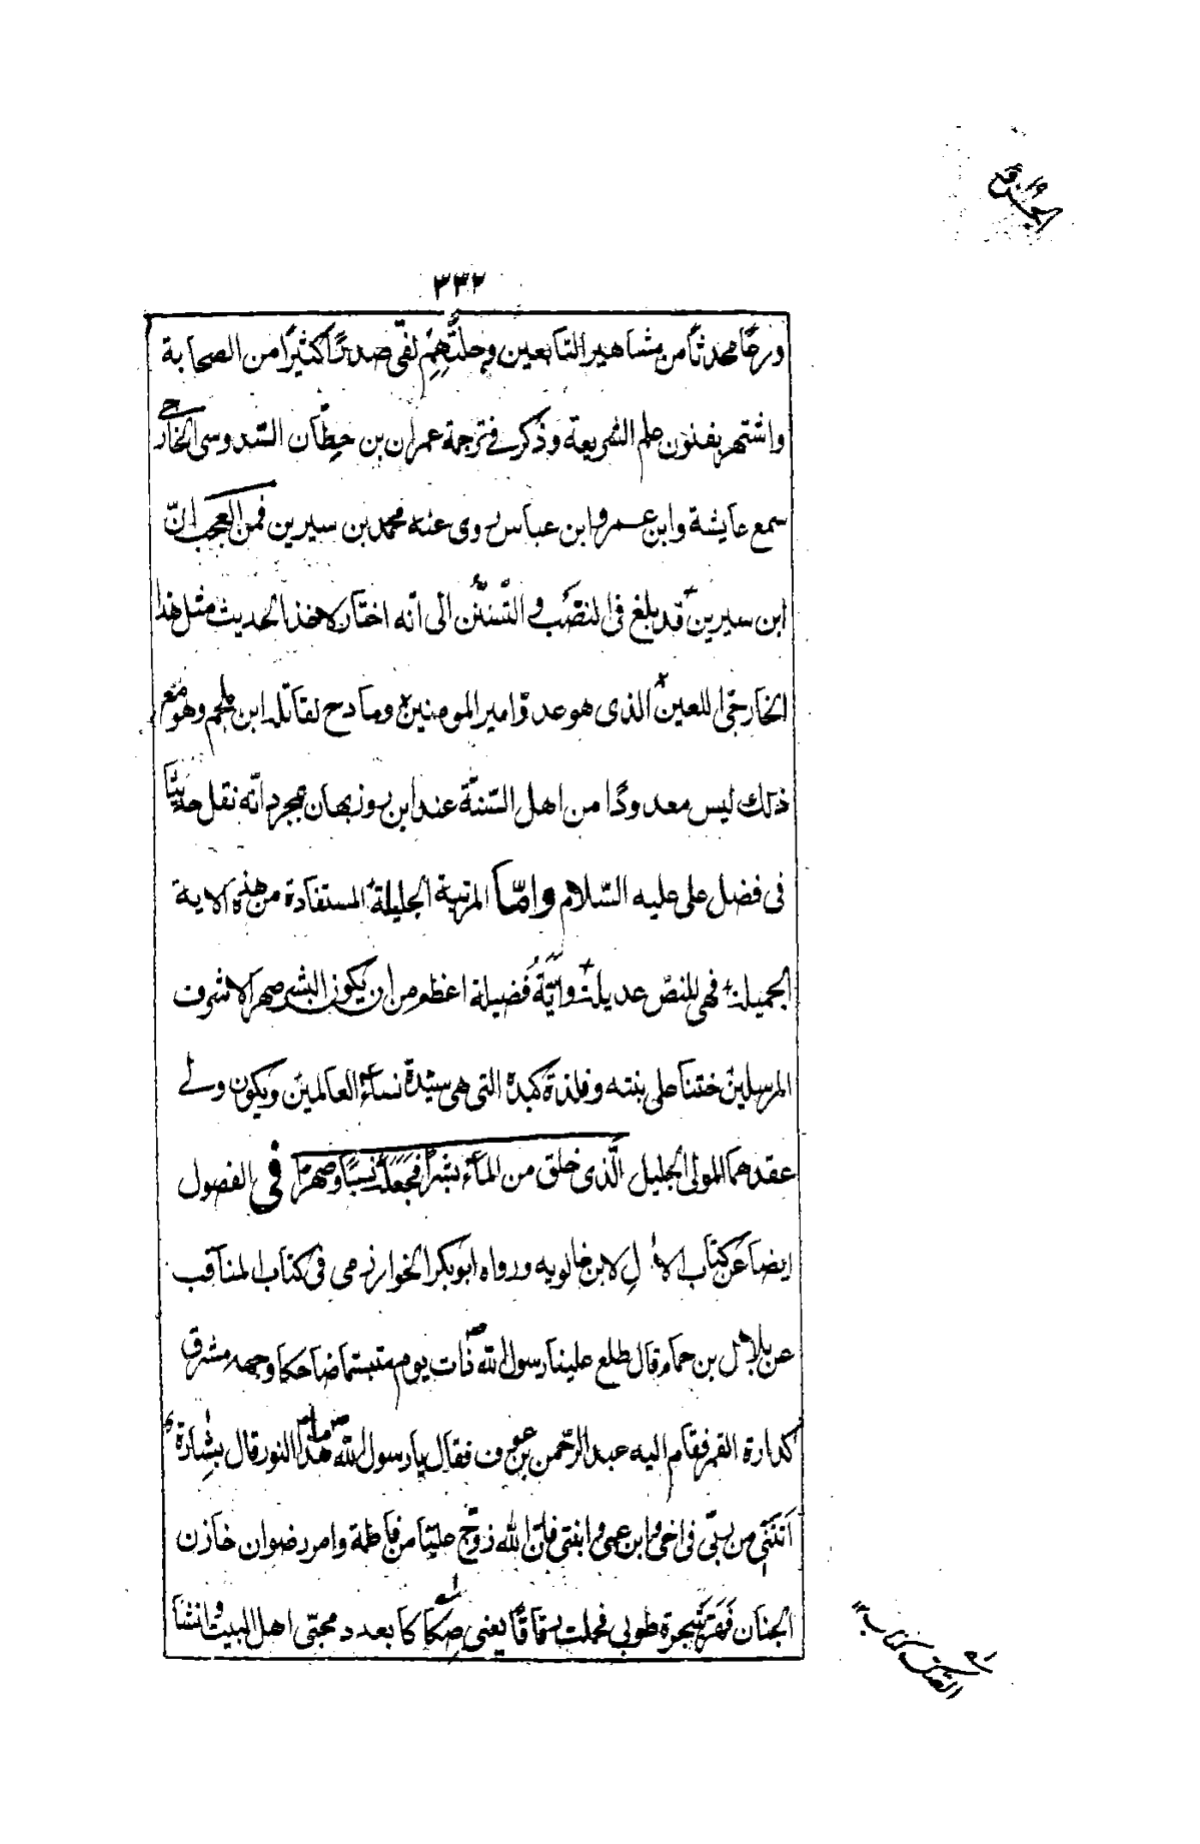 الجزء ١٩
٣٣٢
ورعًا محدثًا من مشاهير التابعين وجلتهم لقى صدرًا كثيرًا من الصحابة
واشتهر بفنون علم الشريعة وذكر فى ترجمة عمران بن حطّان السّدوسى الخارجى
سمع عايشة وابن عمر وابن عباس روى عنه محمد بن سيرين فمن العجب انّ
ابن سيرين قد بلغ فى التنصّب و التّسنّن الى انّه اختار لاخذ الحديث مثل هذا
الخارجىّ اللعين الذى هو عدوّ امير المومنين و مادح لقاتله ابن ملجم وهو مع
ذلك ليس معدودًا من اهل السّنّة عند ابن روزبهان بمجرد انّه نقل حديثًا
فى فضل على عليه السّلام وامّا المرتبة الجليلة المستفادة من هذه الاية
الجميلة فهى للنصّ عديلة وايّة فضيلة اعظم من ان يكون البشر صهر الاشرف
المرسلين ختنا على بنته وفلذة كبده التى هى سيّدة نساء العالمين ويكون ولى
عقدهما المولى الجليل الّذى خلق من الماء بشرًا فجعله نسبًا وصهرًا فى الفصول
ايضا عن كتاب الآل لابن خالويه ورواه ابو بكر الخوارزمى فى كتاب المناقب
عن بلال بن حمامه قال طلع علينا رسول الله ص ذات يوم متبسّما ضاحكا وجهه مشرق
كدارة القمر فقام اليه عبد الرّحمن بن عوف فقال يا رسول الله ص ما هذا النور قال بشارة
اتتنى من ربّى فى اخى وابن عمى وابنتى فانّ الله زوّج عليّا من فاطمة وامر رضوان خازن
الجنان فهزّ شجرة طوبى فحملت رقاقًا يعنى صكاكا بعدد محبّى اهل البيت وانشا
الصك كتاب ١٢